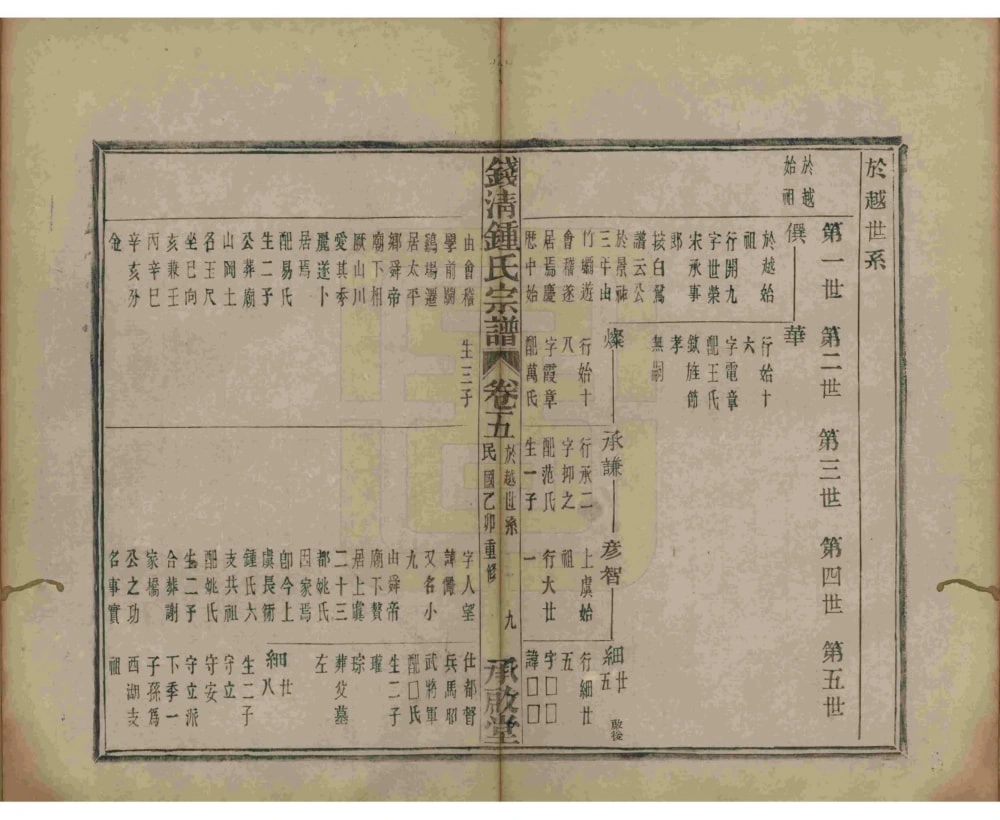 於越世系
第一世 第二世 第三世 第四世 第五世
於越
始祖
僎
於越始
祖
行開九
字世榮
宋承事
郎
按白鶩
譜云公
於景祐
三年由
竹𡒄遊
會稽遂
居焉慶
歴中始
由會稽
學前鬭
鷄場遷
居太平
鄉舜帝
廟下相
厥山川
愛其秀
麗遂卜
居焉
配易氏
生二子
公葬廟
山岡土
名王尺
坐巳向
亥兼壬
丙辛巳
辛亥分
金
華
行始十
六
字電章
配王氏
欽旌節
孝
無嗣
燦
行始十
八
字霞章
配萬氏
生三子
承謙
行承二
字抑之
配范氏
生一子
彥智
上虞始
祖
行大廿
一
字人望
諱儼
又名小
九
由舜帝
廟下贅
居上虞
二十三
都姚氏
因家焉
卽今上
虞長衕
鍾氏六
支共祖
配姚氏
生二子
合葬謝
家橋
公之功
名事實
細廿五
啟從
行細廿
五
字□□
諱□□
仕都督
兵馬昭
武將軍
配□氏
生二子
瓘
琮
葬父墓
左
細廿八
生二子
守立
守安
守立派
下季一
子孫爲
西湖支
祖
錢清鍾氏宗譜
卷五
於越世系
民國乙卯重修
九
承啟堂